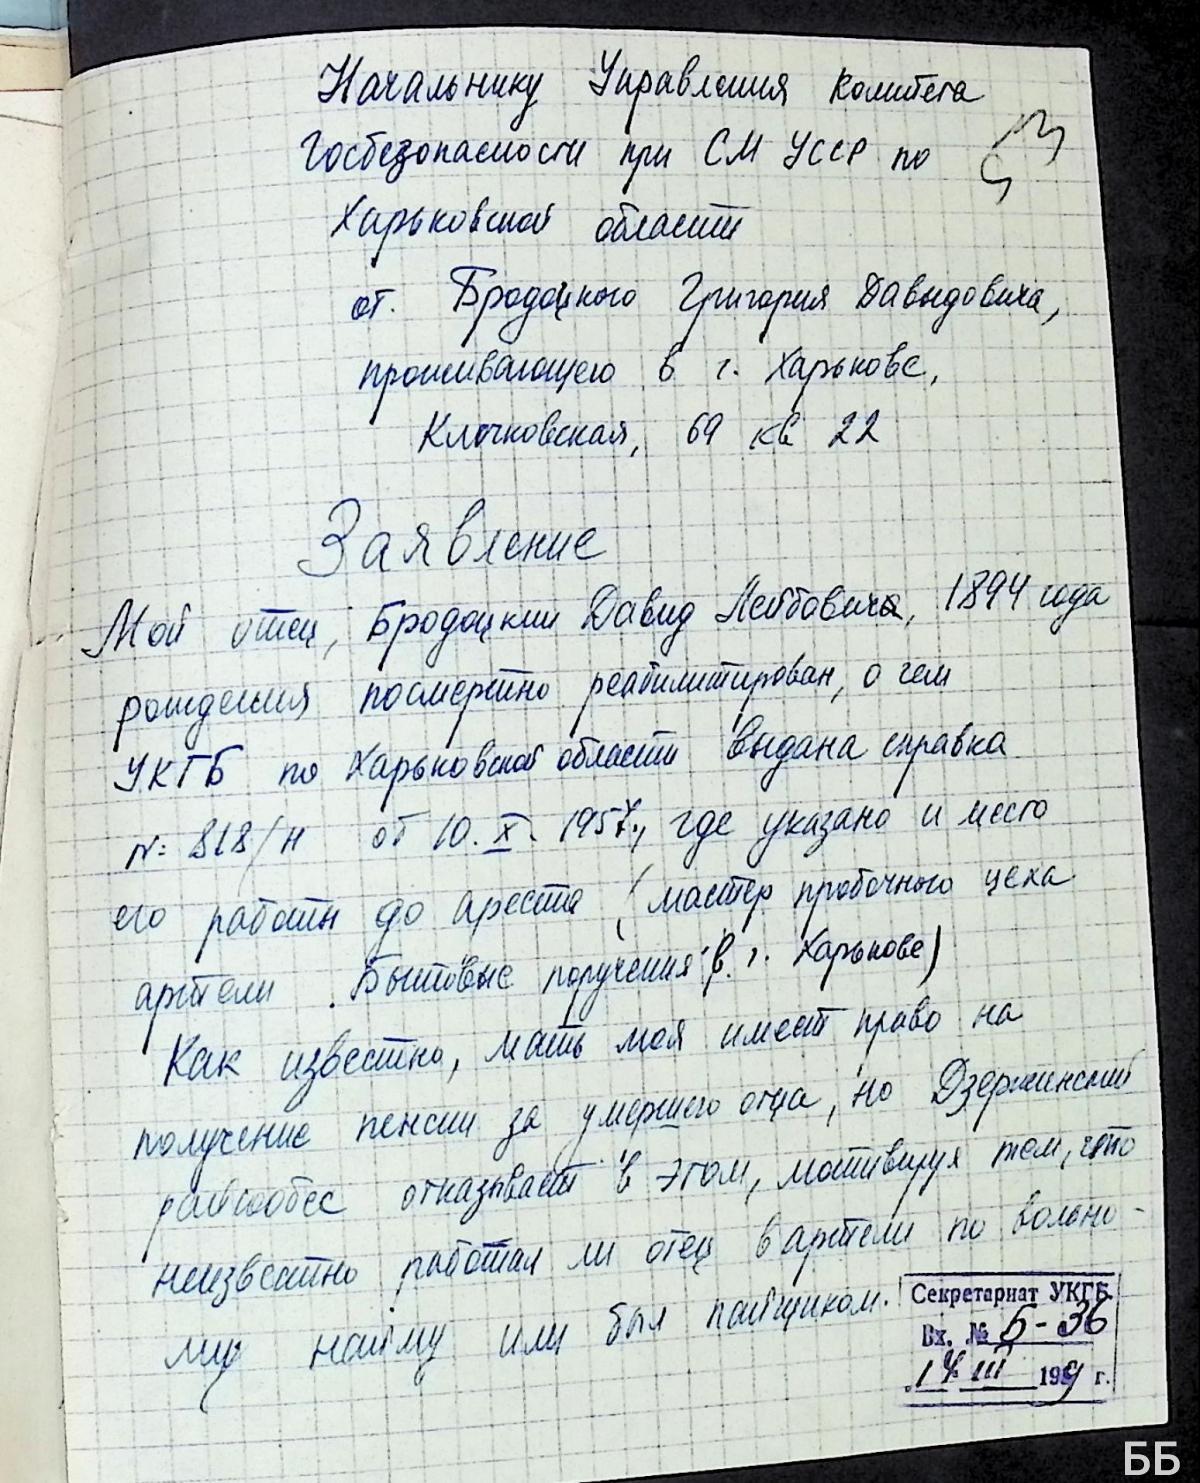 Начальнику Управления Комитета
Госбезопасности при СМ УССР по
Харьковской области
от. Бродоцкого Григория Давыдовича,
проживающего в г. Харькове,
Клочковская, 69 кв 22
Заявление
Мой отец, Бродоцкий Давид Лейбович, 1894 года
рождения посмертно реабилитирован, о чем
УКГБ по Харьковской области выдана справка
№ 818/н от 10.X. 1957г., где указано и место
его работы до ареста (мастер пробочного цеха
артели "Бытовые поручения" в г. Харькове)
Как известно, мать моя имеет право на
получение пенсии за умершего отца, но Дзержинский
райсобес отказывает в этом, мотивируя тем, что
неизвестно работал ли отец в артели по вольно-
му найму или был пайщиком.
Секретариат УКГБ
Вх. № Б-36
III 195 г.
53
ББ